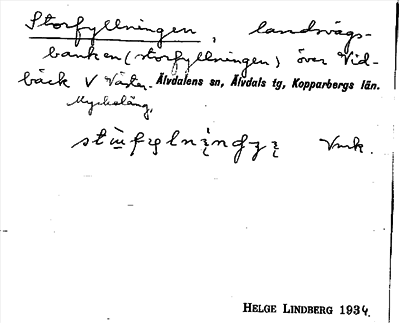 Storfyllningen, landsvägs-
banken (storfyllningen) över Vid-
bäck V Väster. Älvdalens sn, Älvdals tg, Kopparbergs län.
Myckeläng.
Vmk.
HELGE LINDBERG 1934.